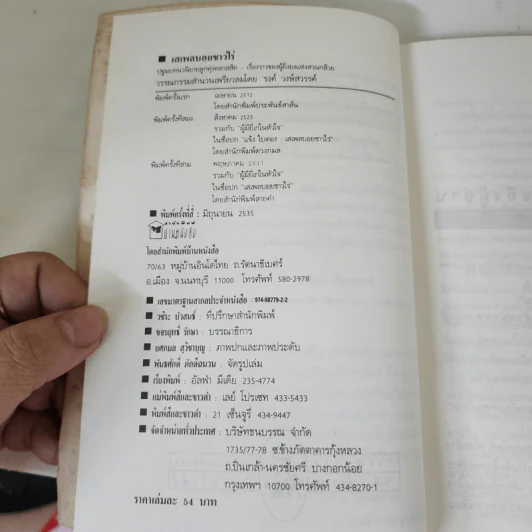 ■ เสเพลบอยชาวไร่
ปฐมบทนวนิยายลูกทุ่งคลาสสิค : เรื่องราวของผู้ยิ่งยงแห่งสวนกล้วย
วรรณกรรมสำนวนเพรียวลมโดย 'รงค์ วงษ์สวรรค์
พิมพ์ครั้งแรก เมษายน 2512
โดยสำนักพิมพ์ประพันธ์สาส์น
พิมพ์ครั้งที่สอง สิงหาคม 2523
รวมกับ "ผู้มียี่เกในหัวใจ"
ในชื่อปก "แจ้ง ใบตอง - เสเพลบอยชาวไร่"
โดยสำนักพิมพ์ดวงกมล
พิมพ์ครั้งที่สาม พฤษภาคม 2531
รวมกับ "ผู้มียี่เกในหัวใจ"
ในชื่อปก "เสเพลบอยชาวไร่"
โดยสำนักพิมพ์สายคำ
■ พิมพ์ครั้งที่สี่ : มิถุนายน 2535
สำนักพิมพ์
บ้านหนังสือ
โดยสำนักพิมพ์บ้านหนังสือ
70/63 หมู่บ้านอินโดไทย ถ.รัตนาธิเบศร์
อ.เมือง จ.นนทบุรี 11000 โทรศัพท์ 580-2978
■ เลขมาตรฐานสากลประจำหนังสือ : 974-88779-2-2
■ วชิระ บัวสนธ์ : ที่ปรึกษาสำนักพิมพ์
■ ขจรฤทธิ์ รักษา : บรรณาธิการ
■ ยศกมล สุวิชาบุญ : ภาพปกและภาพประดับ
■ พันธศักดิ์ ภักดีสนวน : จัดรูปเล่ม
■ เรียงพิมพ์ : อัลฟา มีเดีย 235-4774
■ แม่พิมพ์สีและขาวดำ : เลย์ โปรเซท 433-5433
■ พิมพ์สีและขาวดำ : 21 เซ็นจูรี่ 434-9447
■ จัดจำหน่ายทั่วประเทศ : บริษัทธนบรรณ จำกัด
1735/77-78 ซ.ข้างภัตตาคารกุ้งหลวง
ถ.ปิ่นเกล้า-นครชัยศรี บางกอกน้อย
กรุงเทพฯ 10700 โทรศัพท์ 434-8270-1
ราคาเล่มละ 54 บาท